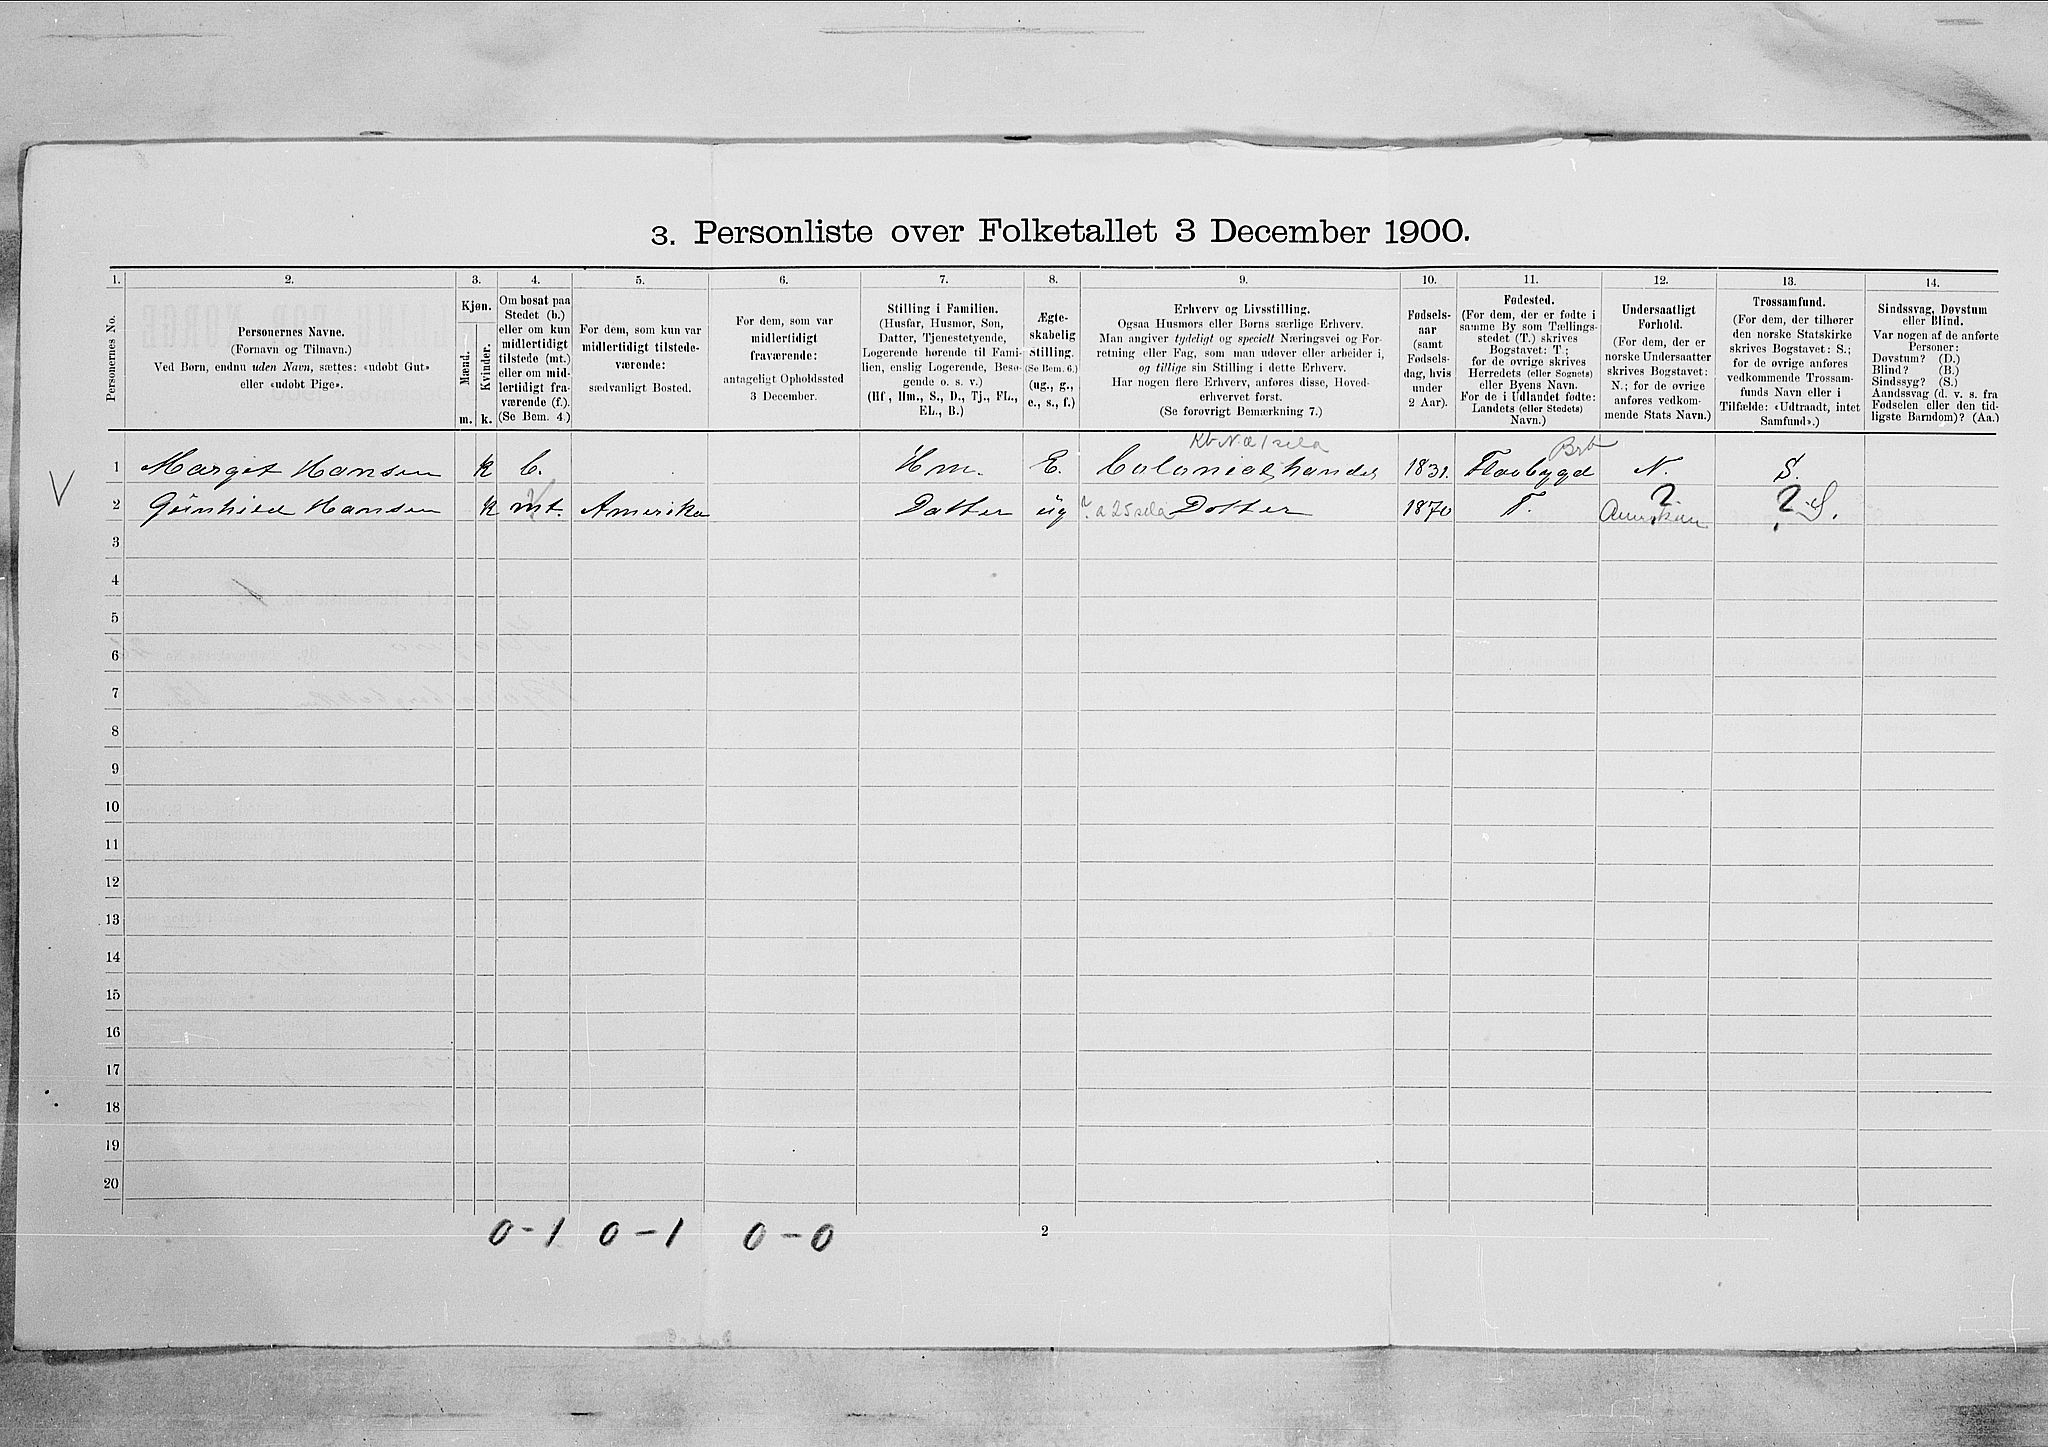 3. Personliste over Folketallet 3 December 1900.
1. 2. 3. 4. 5. 6. 7. 8. 9. 10. 11. 12. 13. 14.
Personernes No.
Personernes Navne.
(Fornavn og Tilnavn.)
Ved Børn, endnu uden Navn, sættes: «udøbt Gut»
eller «udøbt Pige».
Kjøn.
Mænd.
Kvinder.
m. k.
Om bosat paa
Stedet (b.)
eller om kun
midlertidigt
tilstede (mt.)
eller om mid-
lertidigt fra-
værende (f.).
(Se Bem. 4.)
For dem, som kun var
midlertidigt tilstede-
værende:
sædvanligt Bosted.
For dem, som var
midlertidigt
fraværende:
antageligt Opholdssted
3 December.
Stilling i Familien.
(Husfar, Husmor, Søn,
Datter, Tjenestetyende,
Logerende hørende til Fami-
lien, enslig Logerende, Besø-
gende o. s. v.)
(Hf, Hm., S., D., Tj., FL.,
EL., B.)
Ægte-
skabelig
Stilling.
(Se Bem. 6.)
(ug., g.,
e., s., f.)
Erhverv og Livsstilling.
Ogsaa Husmors eller Børns særlige Erhverv.
Man angiver tydeligt og specielt Næringsvei og For-
retning eller Fag, som man udøver eller arbeider i,
og tillige sin Stilling i dette Erhverv.
Har nogen flere Erhverv, anføres disse, Hoved-
erhvervet først.
(Se forøvrigt Bemærkning 7.)
Fødsels-
aar
(samt
Fødsels-
dag, hvis
under
2 Aar).
Fødested.
(For dem, der er fødte i
samme By som Tællings-
stedet (T.) skrives
Bogstavet: T.;
for de øvrige skrives
Herredets (eller Sognets)
eller Byens Navn.
For de i Udlandet fødte:
Landets (eller Stedets)
Navn.)
Undersaatligt
Forhold.
(For dem, der er
norske Undersaatter
skrives Bogstavet:
N.; for de øvrige
anføres vedkom-
mende Stats Navn.)
Trossamfund.
(For dem, der tilhører
den norske Statskirke
skrives Bogstavet: S.;
for de øvrige anføres
vedkommende Trossam-
funds Navn eller i
Tilfælde: «Udtraadt, intet
Samfund».)
Sindssvag, Døvstum
eller Blind.
Var nogen af de anførte
Personer:
Døvstum? (D.)
Blind? (B.)
Sindssyg? (S.)
Aandssvag (d. v. s. fra
Fødselen eller den tid-
ligste Barndom)? (Aa.)
Brb
1 Marget Hansen k b. Hm. E. Colonialhandel 1831. Flaabygd N. S.
V
2 Günhild Hansen k mt. Amerika Datter üg Datter 1870 T. ? ? S.
Amerikan
3
4
5
6
7
8
9
10
11
12
13
14
15
16
17
18
19
20
0-1 0-1 0-0
2